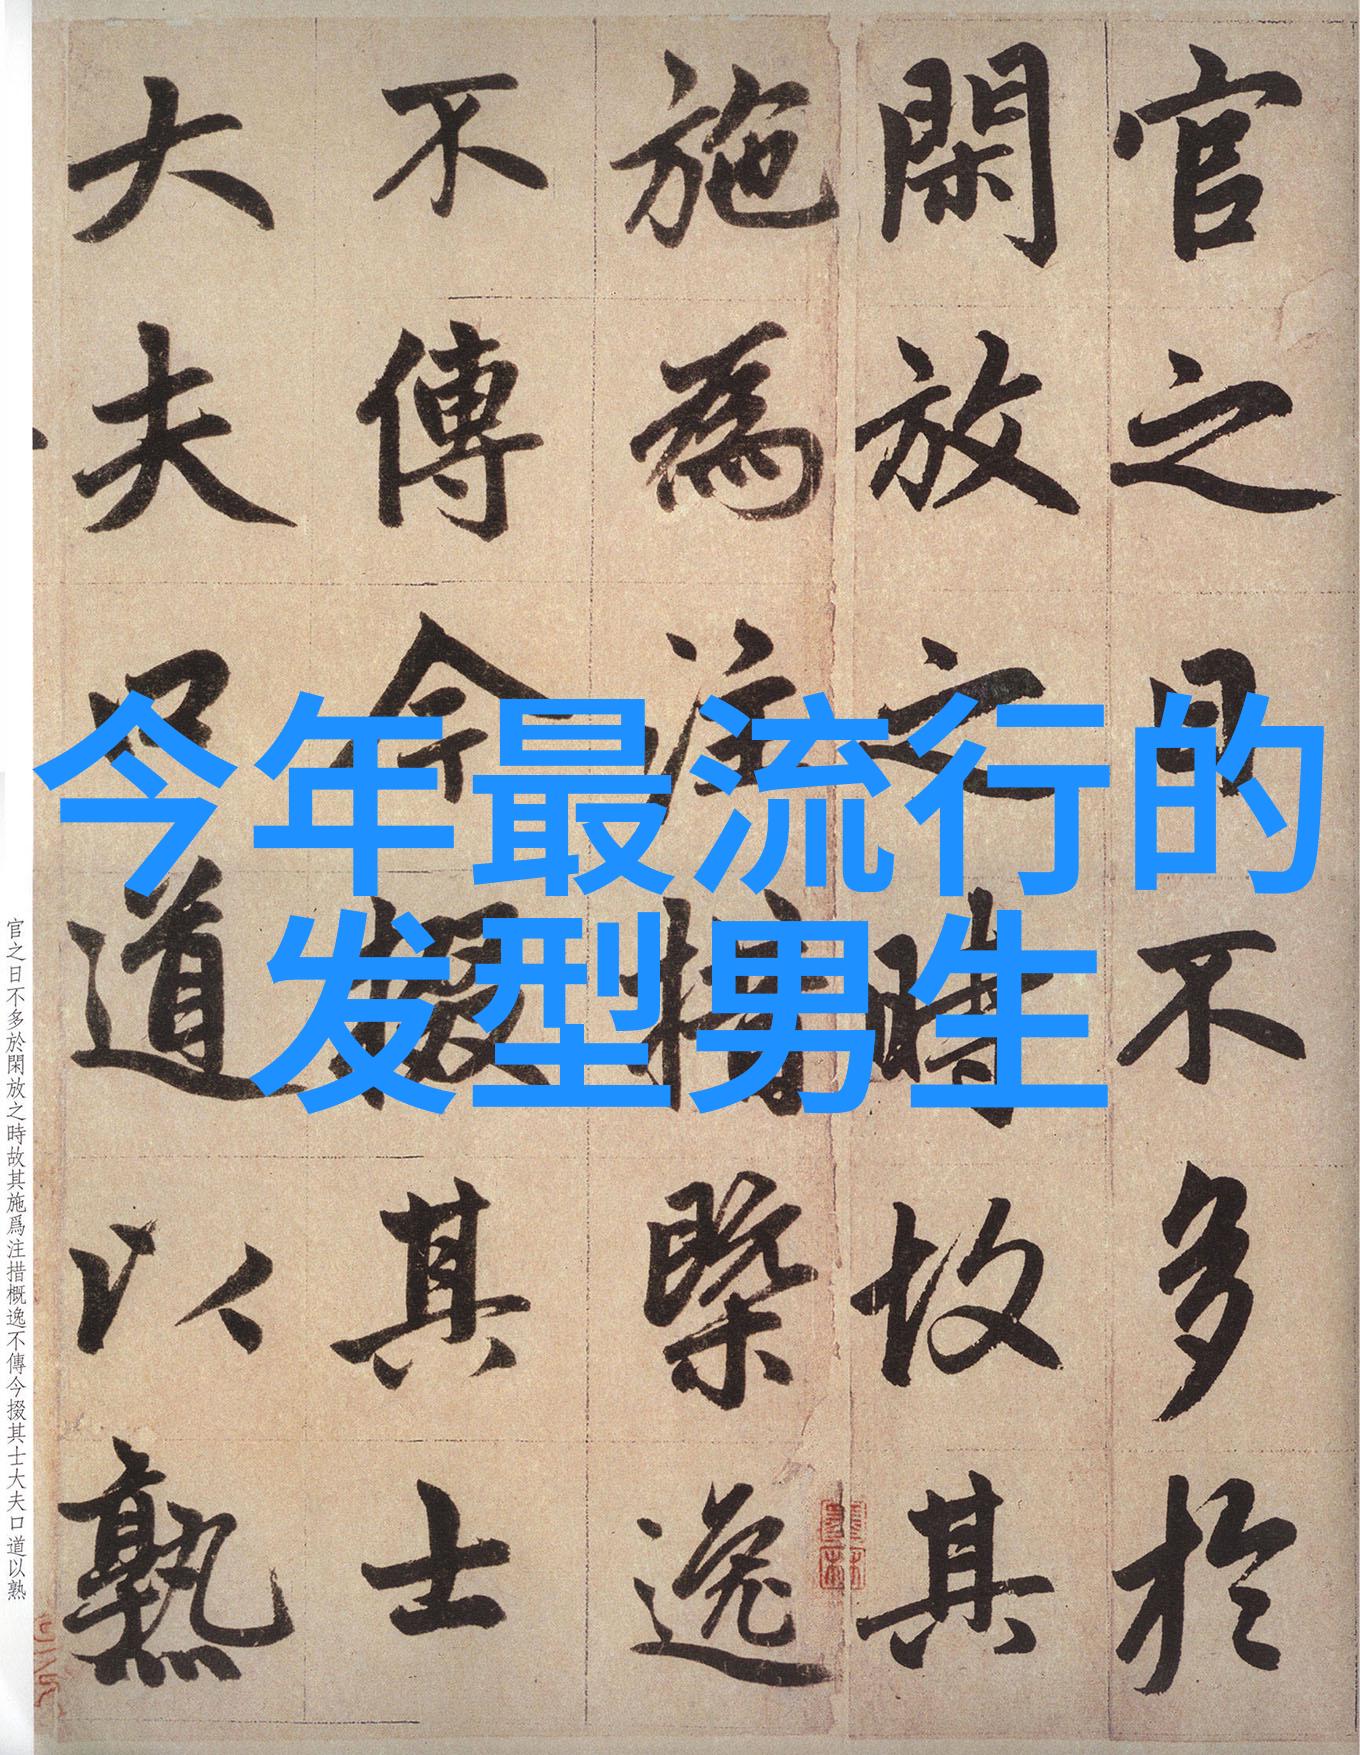 官之日不多於
閑放之時故其
施為注措槩逸
不傳今掇其士
大夫口道以熟
今年最流行的
发型男生
官之日不多於閑放之時故其施爲注措概逸不傳今掇其士大夫口道以熟